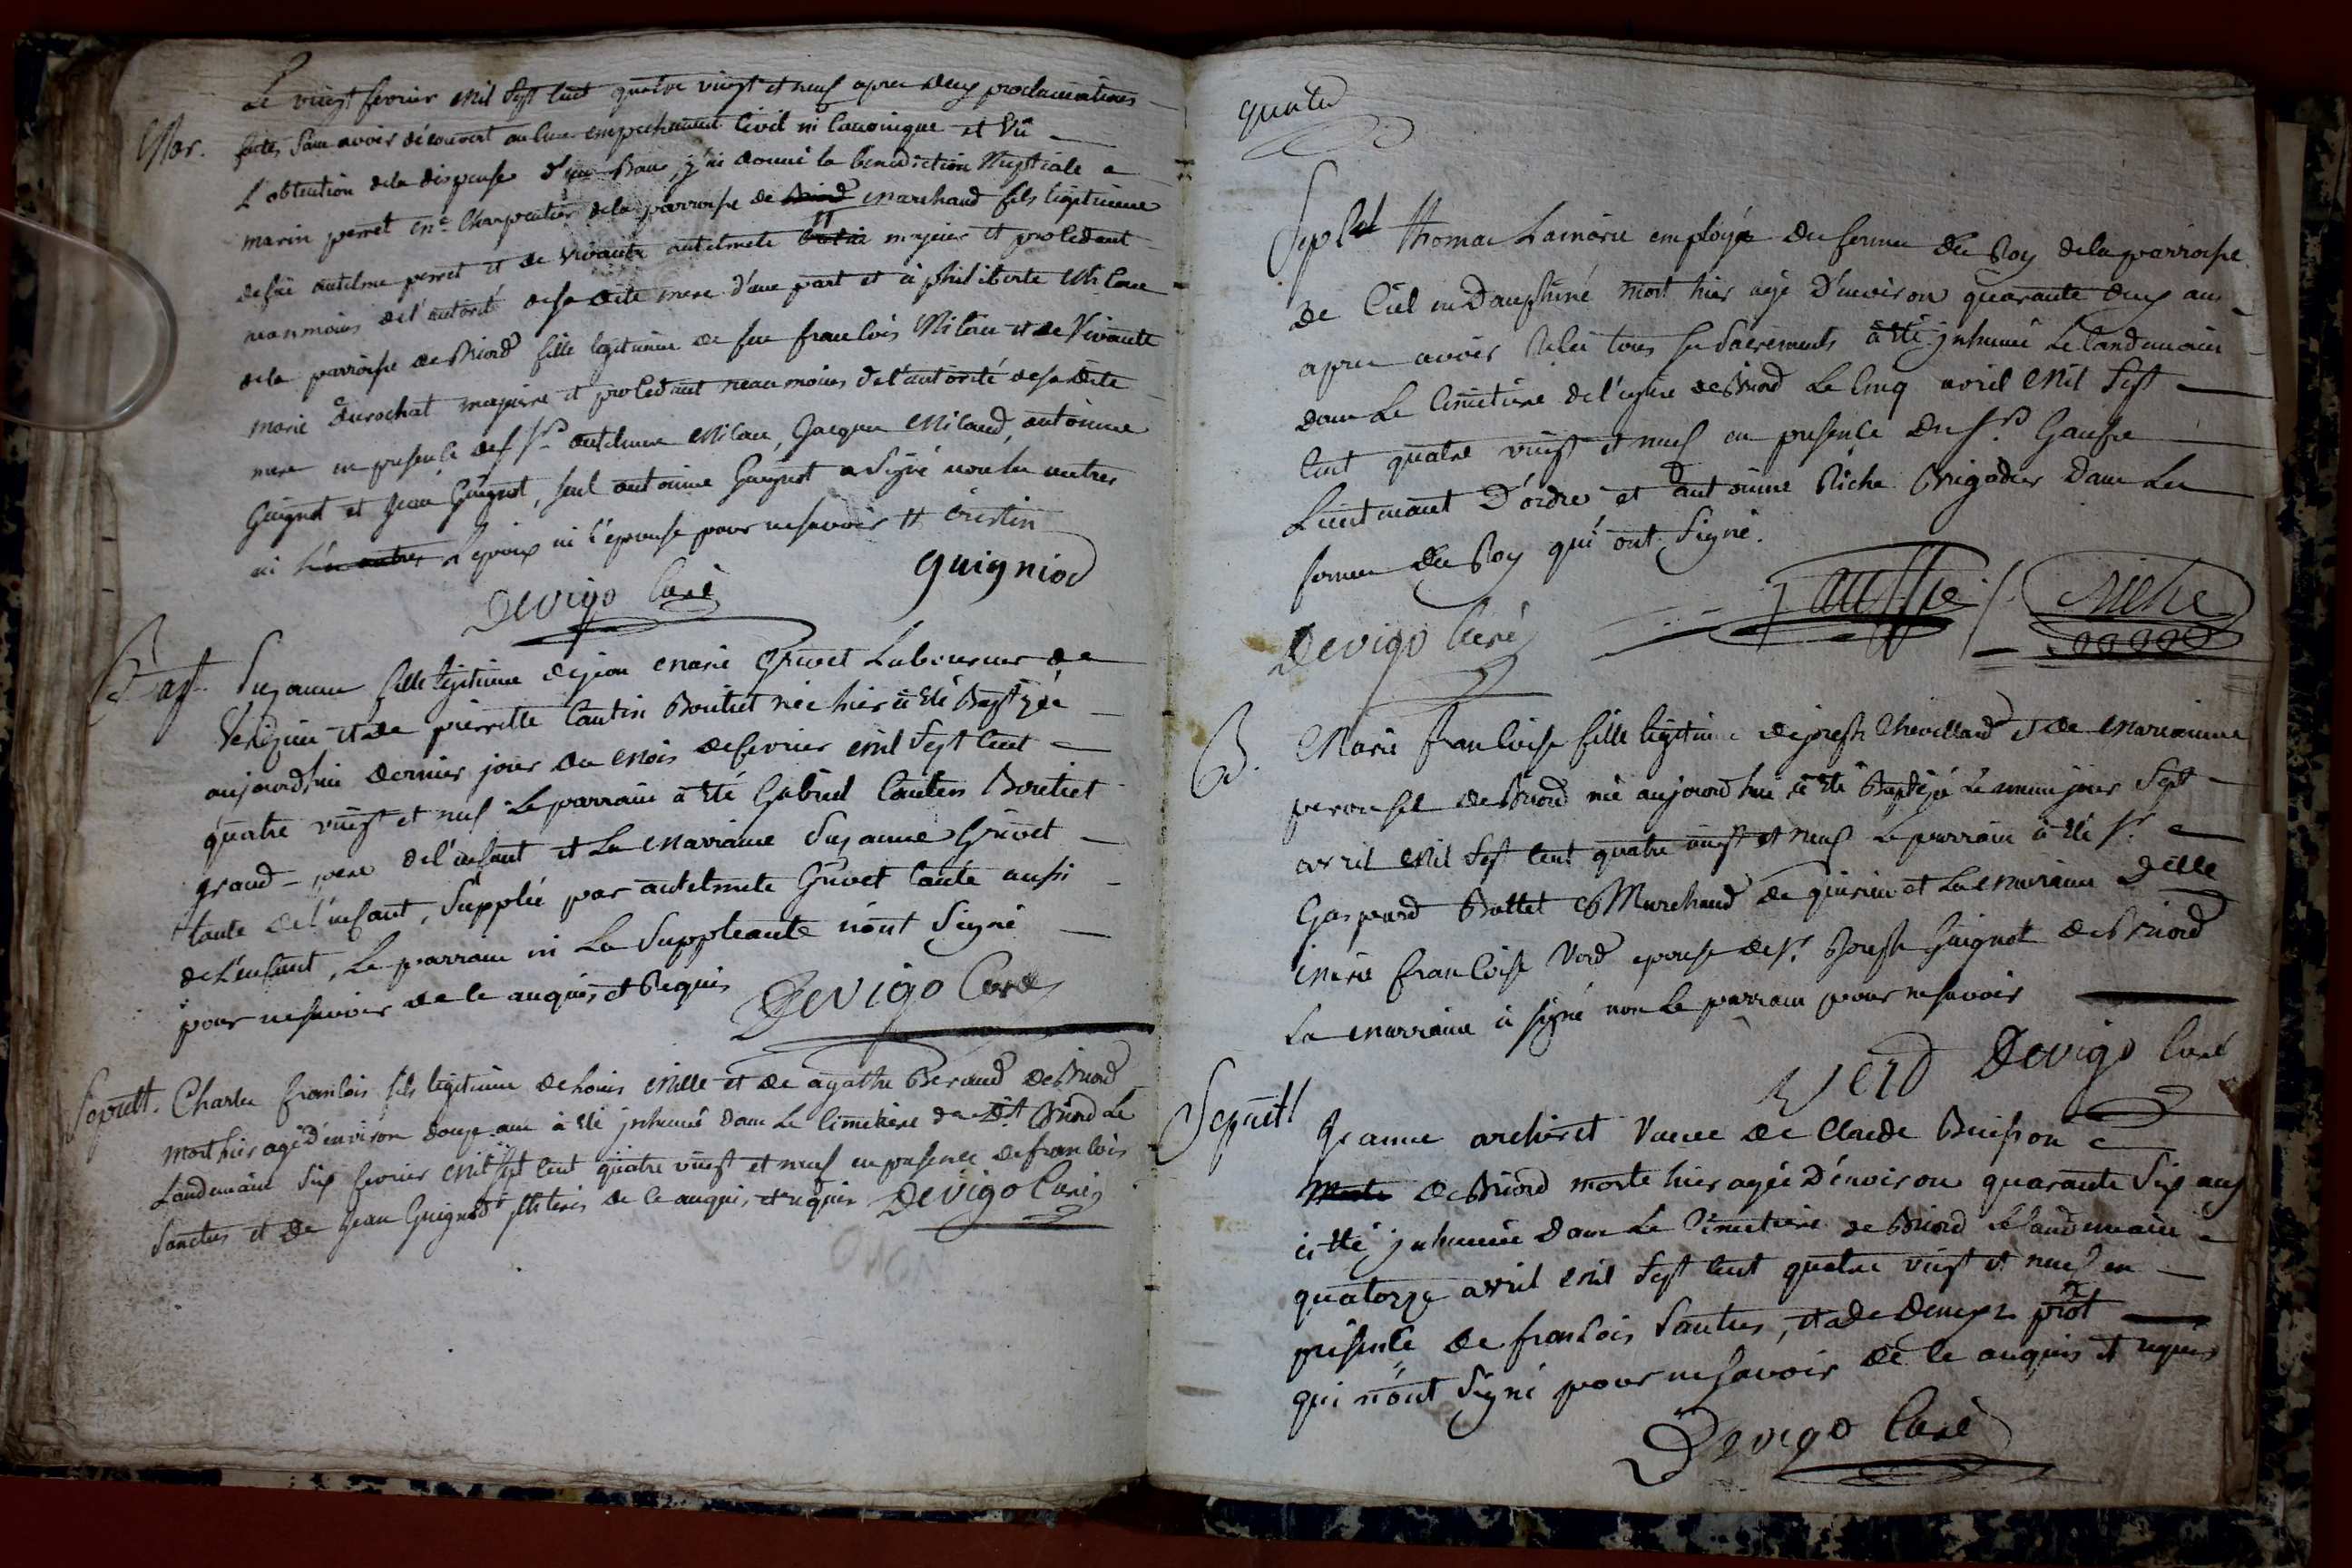 Le vingt fevrier mil sept cent quatre vingt et neuf apres deux proclamations
Mar. faites sans avoir découvert aucun empechement Civil ni Canonique et Vû
L'obtention de la dispense d'un Banc, j'ai donné la bénédiction Nuptiale a
marin perret Charpentier de la parroisse de Briord marchand fils légitime
de feu antelme perret et de vivante antelmete majeur et procedant
neanmoins de l'autorité de sa dite mere d'une part et à philiberte Milan
de la parroisse de Briord fille legitime de feu francois Milan et de Vivante
marie Durochat majeure et procedant neanmoins de l'autorité de sa dite
mere en presence des Srs antelme Milan, Jacques Miland, antoinne
Guignot et Jean Guignot, seul antoinne Guignot a signé non les autres
ni Les autres L'epoux ni l'épouse pour ne savoir # cristin
Guigniod
Devigo Curé
Bapt. Suzanne fille legitime de jean marie Grivet Laboureur de
Verizieu et de pierrette Cantin Boutiet née hier à été Baptizée
aujourd'hui dernier jour du mois de fevrier mil sept cent
quatre vingt et neuf Le parrain à été Gabriel Cantin Boutiet
grand-pere de l'enfant et La marraine Suzanne Grivet
tante de l'enfant, Supplée par antelmete Grivet tante aussi
de L'enfant, Le parrain ni La Suppleante n'ont Signé
pour ne savoir de ce anquis et Requis Devigo Curé
Sepult. Charles francois fils legitime de Louis Mille et de agathe Beraud de Briord
mort hier agé d'environ douze ans à été inhumé dans Le Cimetiere du dt Briord Le
Landemain Six fevrier mil sept cent quatre vingt et neuf en presence de francois
Sanctus et de Jean Guignod illiterés de ce anquis et requis Devigo Curé
quatre
Sepult Thomas Lamarie employé des fermes du Roy de la parroisse
de Ciel en Dauphiné mort hier agé D'environ quarante deux ans
apres avoir Reçu tous ses Sacrements à été inhumé Le landemain
dans Le Cimetiere de l'eglise de Briord Le Cinq avril mil Sept
cent quatre vingt et neuf en presence du Sr Gausse
Lieutenant D'ordre et antoinne Riche Brigadier dans Les
fermes du Roy qui ont Signé.
Devigo Curé Gausse Riche
B. Marie francoise fille legitime de joseph Chevillard et de marianne
perousel de Briord née aujourd'hui à été Baptizé Le meme jour Sept
avril mil Sept cent quatre vingt et neuf Le parrain à été Sr
Gaspard Battet Marchand de quirieu et La marraine Delle
marie francoise Verd epouse de Sr Joseph Guignot de Briord
La marraine à signé non Le parrain pour ne savoir
Verd Devigo Curé
Sepult Jeanne archiret Veuve de Claude Buisson
Morte de Briord morte hier agée D'environ quarante Six ans
à été inhumée dans Le Cimetiere de Briord Le Landemain
quatorze avril mil Sept cent quatre vingt et neuf en
présence de francois Santus, et de Denys piot
qui n'ont Signé pour ne savoir de ce anquis et requis
Devigo Curé